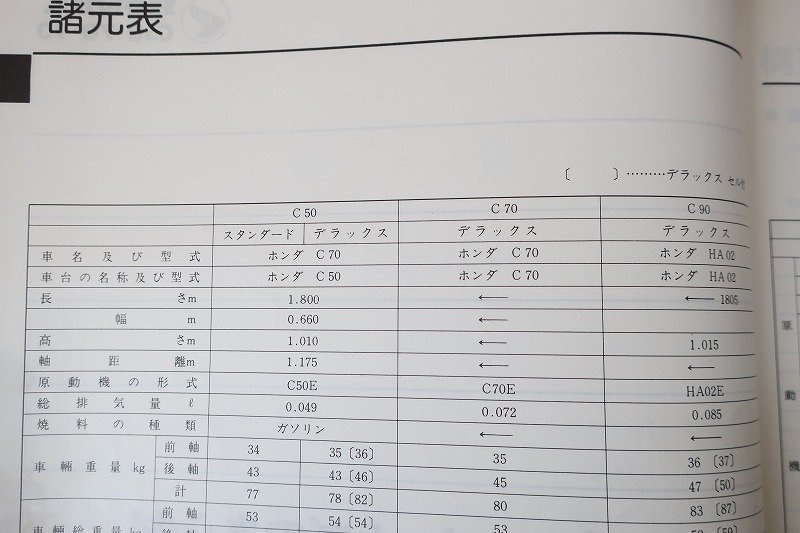 諸元表
〔 〕………デラックス セル付
C 50 C 70 C 90
スタンダード デラックス デラックス デラックス
車名及び型式 ホンダ C 70 ホンダ C 70 ホンダ HA 02
車台の名称及び型式 ホンダ C 50 ホンダ C 70 ホンダ HA 02
長さm 1.800 ← ← 1805
幅m 0.660 ←
高さm 1.010 ← 1.015
軸距離m 1.175 ← ←
原動機の形式 C50E C70E HA02E
総排気量ℓ 0.049 0.072 0.085
燃料の種類 ガソリン ← ←
車輌重量kg 前軸 34 35〔36〕 35 36〔37〕
後軸 43 43〔46〕 45 47〔50〕
計 77 78〔82〕 80 83〔87〕
車輌総重量kg 前軸 53 54〔54〕 53
原
動
機